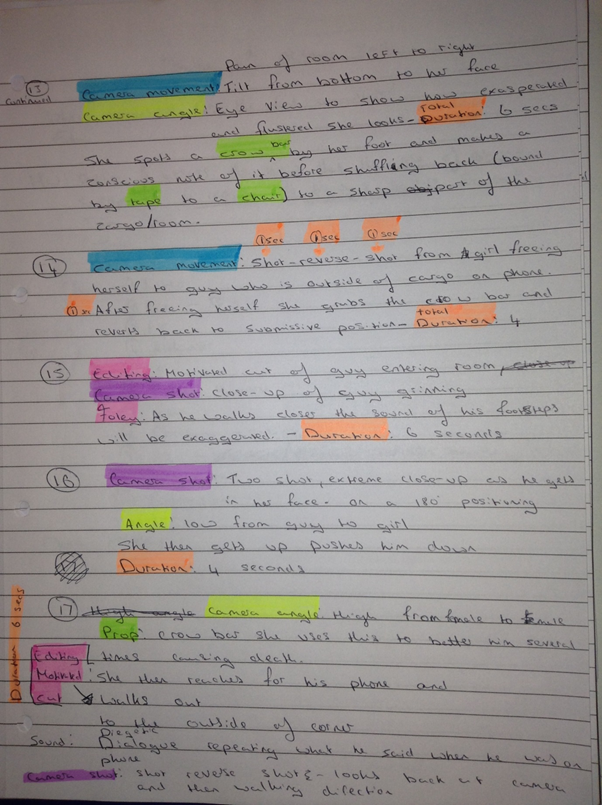 Pan of room left to right
13 continued Camera movement: Tilt from bottom to her face
Camera angle: Eye view to show how exasperated
and flustered she looks - Total Duration: 6 secs
She spots a crow bar by her foot and makes a
conscious note of it before shuffling back (bound
by tape to a chair) to a sharp part of the
cargo/room.
1 sec 1 sec 1 sec
14 Camera movement: Shot-reverse-shot from girl freeing
herself to guy who is outside of cargo on phone.
1 s. After freeing herself she grabs the crow bar and
reverts back to submissive position - total Duration: 4
15 Editing: Motivated cut of guy entering room,
Camera shot: close-up of guy grinning
Foley: As he walks closer the sound of his footsteps
will be exaggerated. - Duration: 6 seconds
16 Camera shot: Two shot, extreme close-up as he gets
in her face - on a 180° positioning
Angle: low from guy to girl
She then gets up pushes him down
Duration: 4 seconds
17 High angle Camera angle: High from female to male
Prop: crow bar she uses this to batter him several
Editing times causing death.
Motivated: She then reaches for his phone and
Cut walks out
Duration 6 secs
to the outside of corner
Sound: Diegetic Dialogue repeating what he said when he was on
phone
Camera shot: shot reverse shots - looks back at camera
and then walking direction